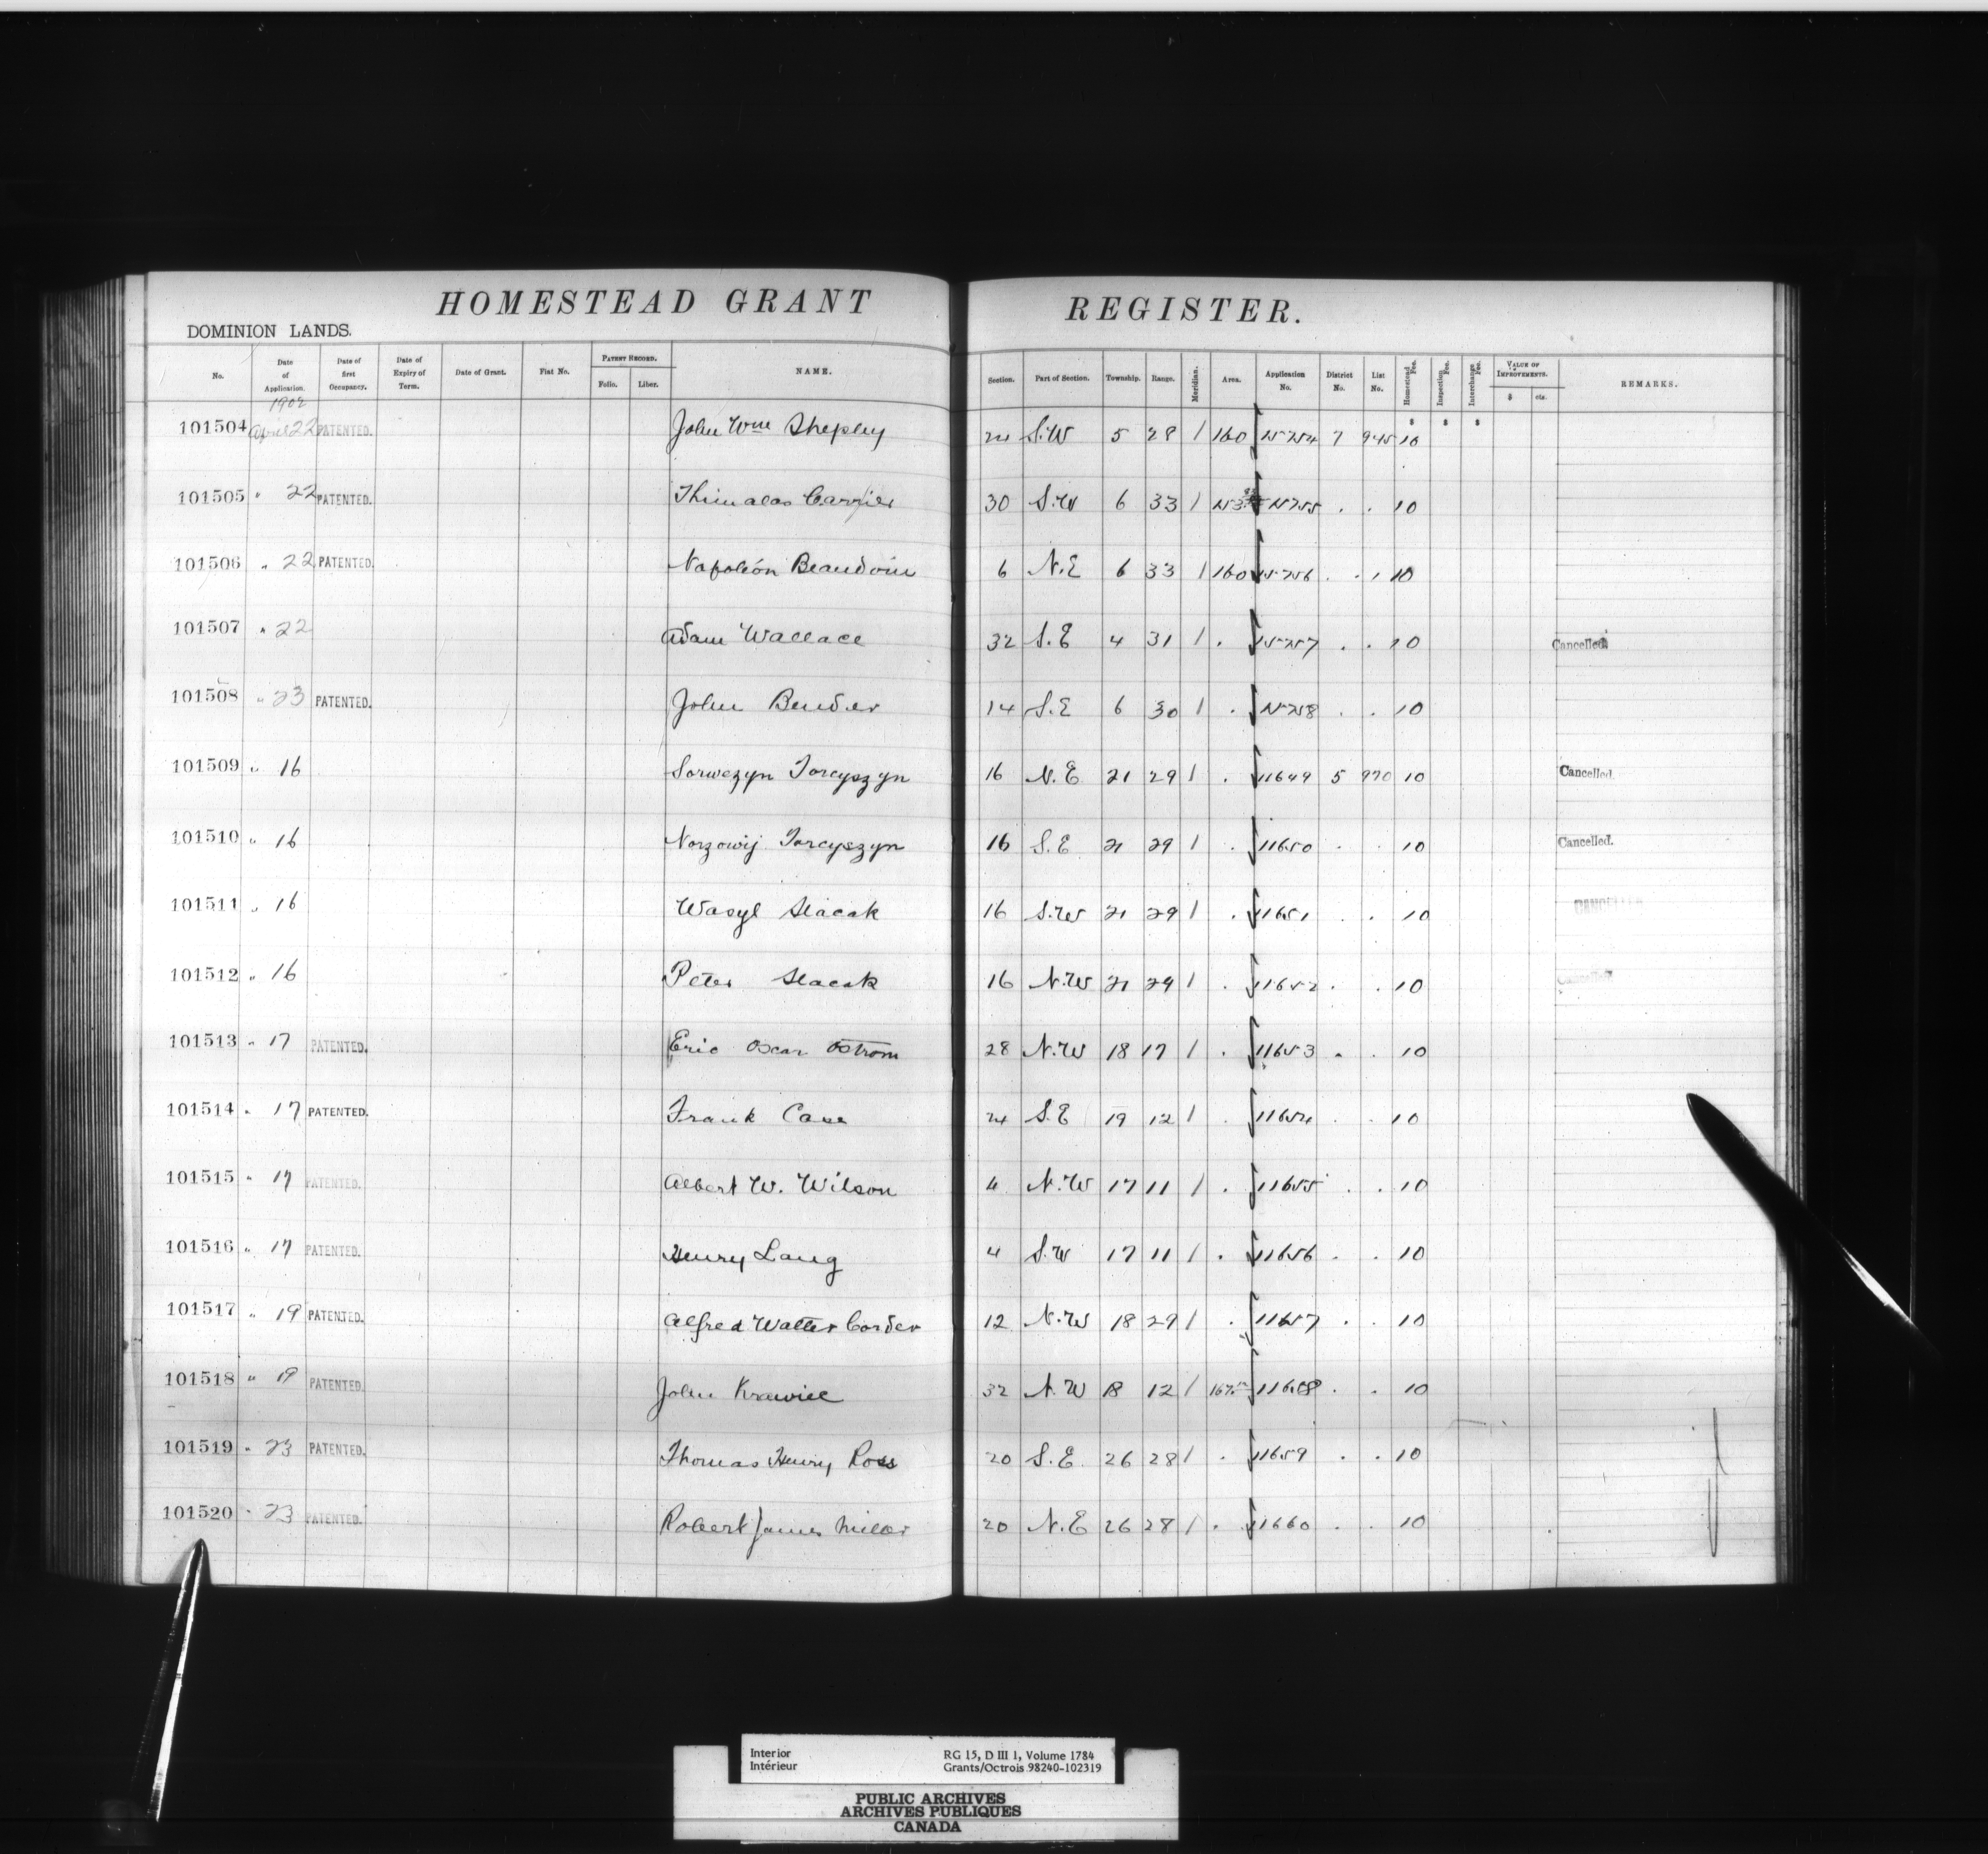 HOMESTEAD GRANT REGISTER.
DOMINION LANDS.
No. Date of Application. Date of first Occupancy. Date of Expiry of Term. Date of Grant. Fiat No. PATENT RECORD. Folio. Liber. NAME. Section. Part of Section. Township. Range. Meridian. Area. Application No. District No. List No. Homestead Fee. Inspection Fee. Interchange Fee. VALUE OF IMPROVEMENTS. $ cts. REMARKS.
1902
$ $ $
101504 April 22 PATENTED. John Wm Shepley 24 S.W 5 28 1 160 15254 7 945 10
101505 " 22 PATENTED. Carrier 30 S.W 6 33 1 15255 . . 10
101506 " 22 PATENTED. Napoléon Beaudoin 6 N.E 6 33 1 160 15256 . . 10
101507 " 22 Adam Wallace 32 S.E 4 31 1 . 15257 . . 10 Cancelled
101508 " 23 PATENTED. John Bender 14 S.E 6 30 1 . 15258 . . 10
101509 " 16 Torcyszyn 16 N.E 21 29 1 . 11649 5 970 10 Cancelled.
101510 " 16 Torcyszyn 16 S.E 21 29 1 . 11650 . . 10 Cancelled.
101511 " 16 Wasyl Slacak 16 S.W 21 29 1 . 11651 . . 10 CANCELLED
101512 " 16 Peter Slacak 16 N.W 21 29 1 . 11652 . . 10 Cancelled
101513 " 17 PATENTED. Eric Oscar Ostrom 28 N.W 18 17 1 . 11653 . . 10
101514 " 17 PATENTED. Frank Case 24 S.E 19 12 1 . 11654 . . 10
101515 " 17 PATENTED. Albert W. Wilson 4 N.W 17 11 1 . 11655 . . 10
101516 " 17 PATENTED. Henry Lang 4 S.W 17 11 1 . 11656 . . 10
101517 " 19 PATENTED. Alfred Walter Corder 12 N.W 18 29 1 . 11657 . . 10
101518 " 19 PATENTED. John 32 N.W 18 12 1 11658 . . 10
101519 " 23 PATENTED. Thomas Henry Ross 20 S.E. 26 28 1 . 11659 . . 10
101520 " 23 PATENTED. Robert James Miller 20 N.E 26 28 1 . 11660 . . 10
Interior RG 15, D III 1, Volume 1784
Intérieur Grants/Octrois 98240-102319
PUBLIC ARCHIVES
ARCHIVES PUBLIQUES
CANADA